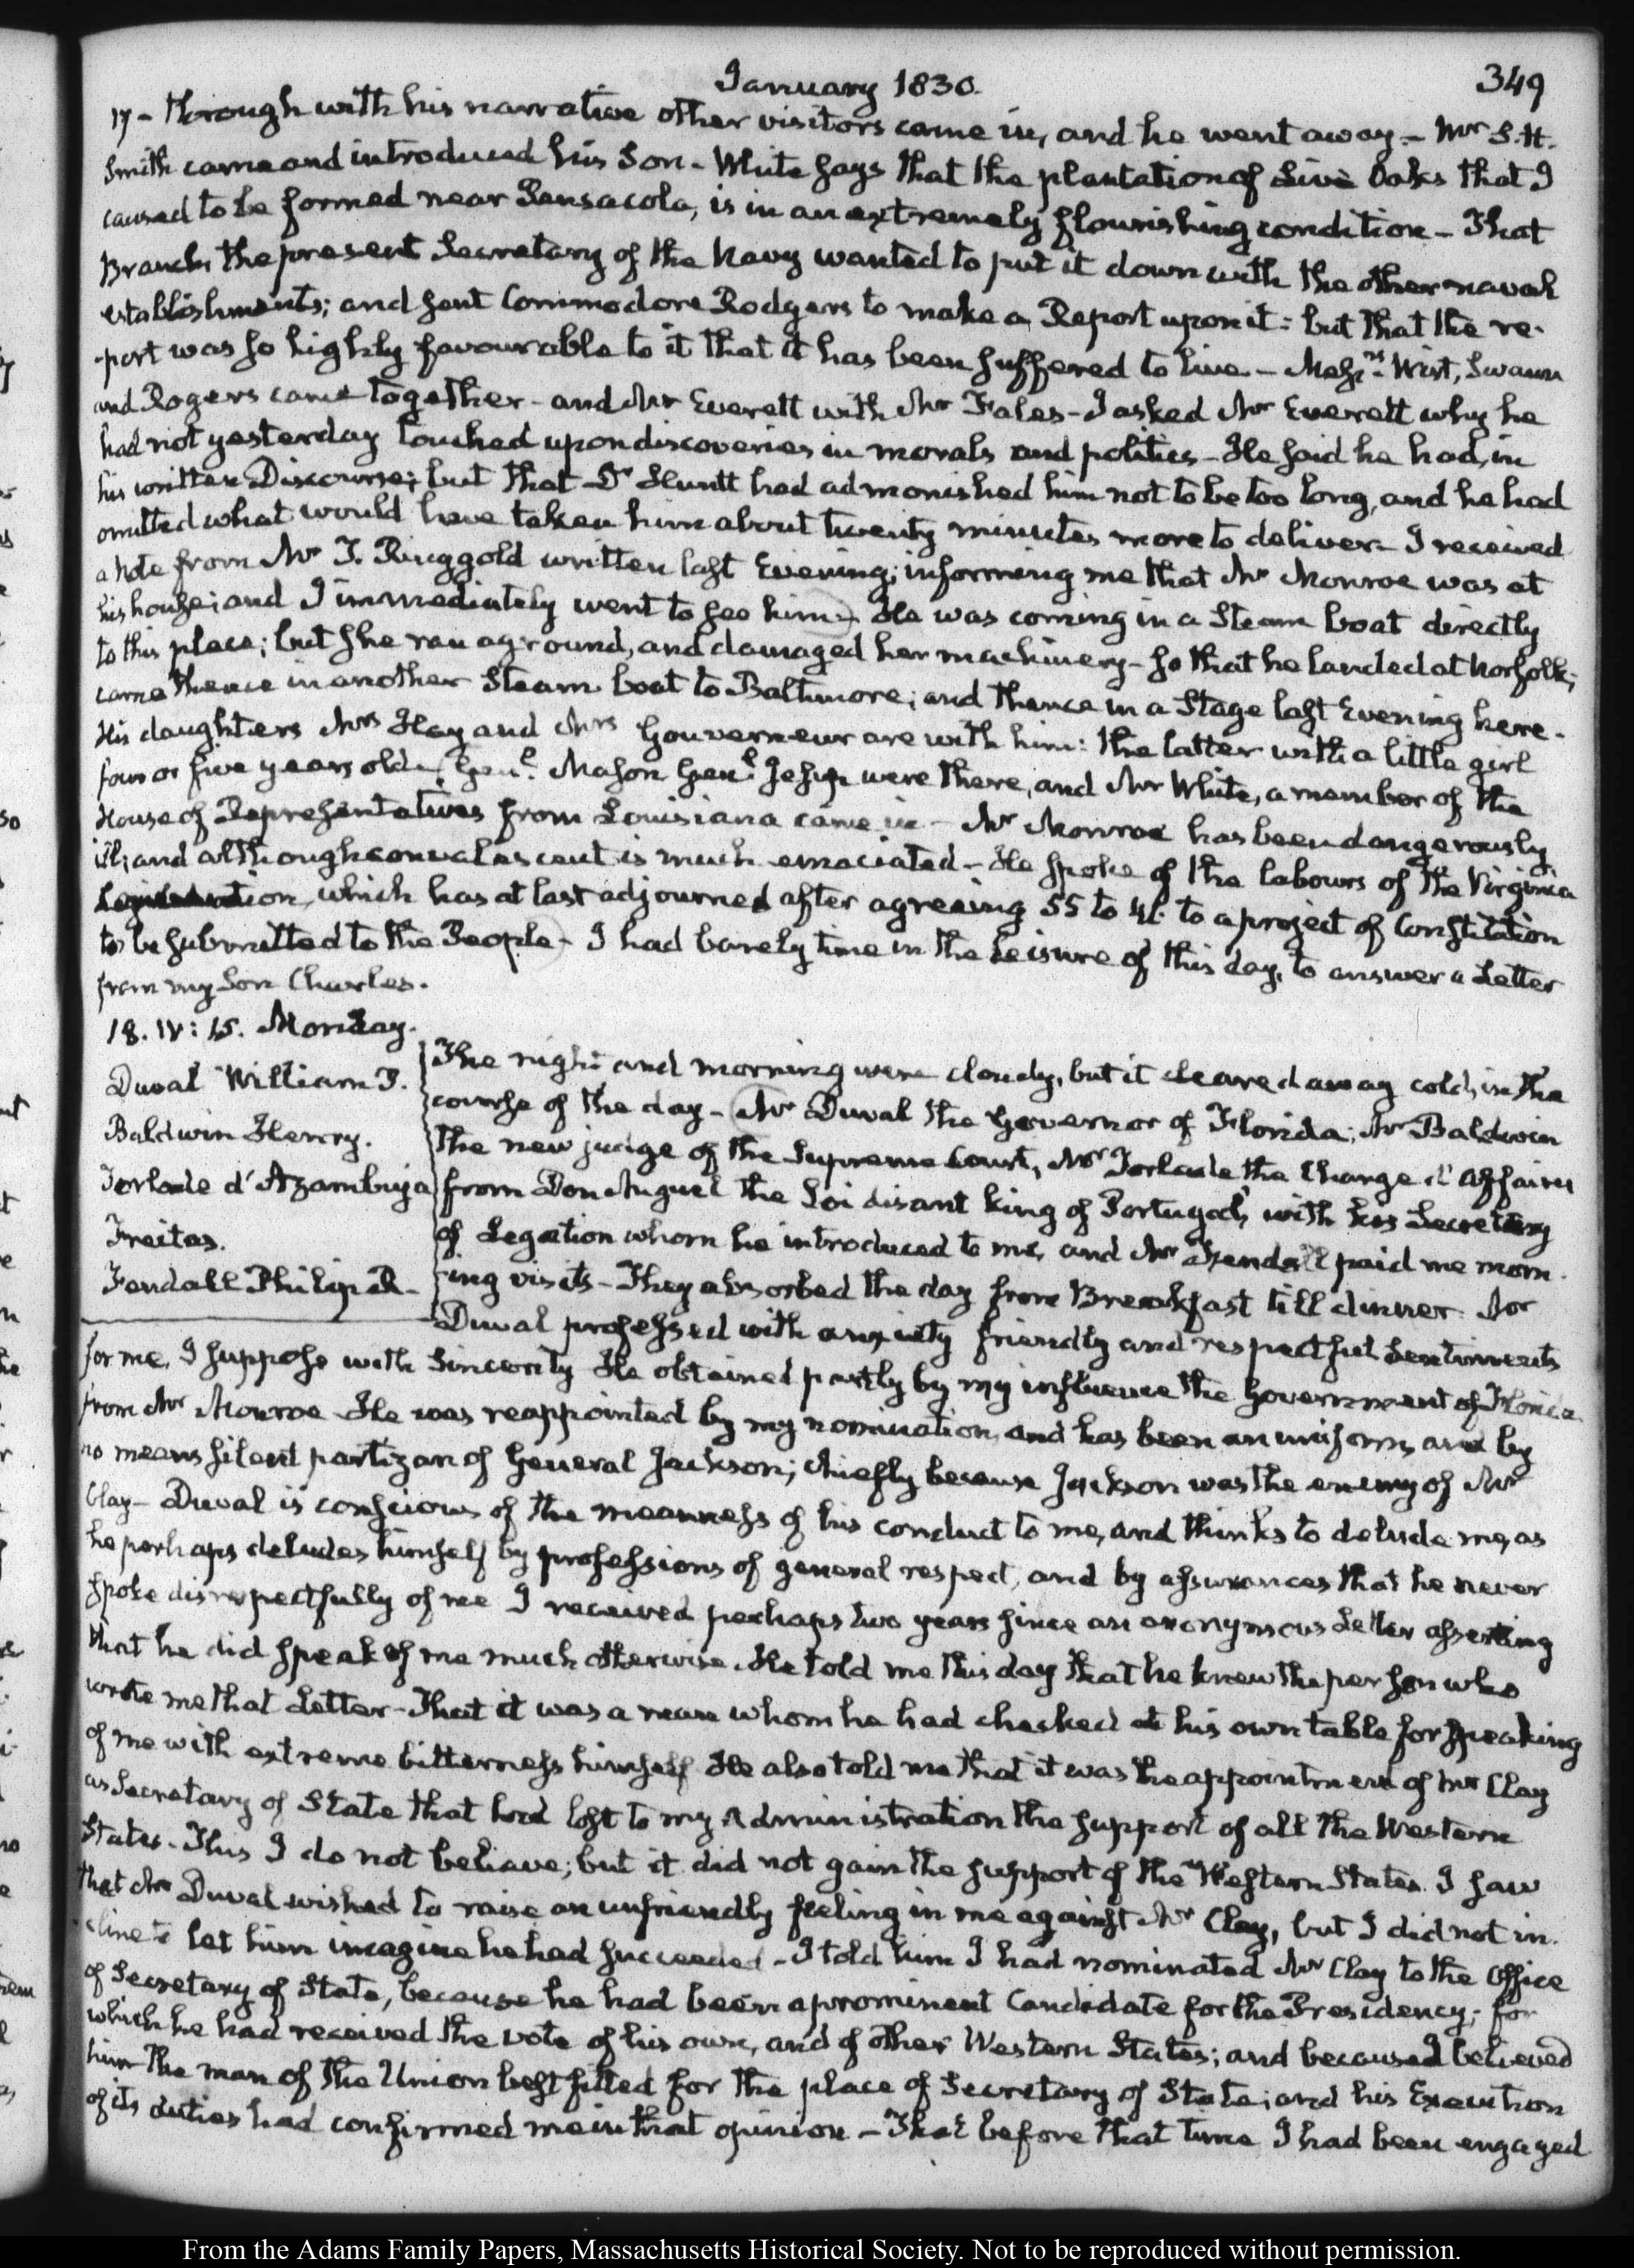 January 1830.
349
17 - through with his narrative other visitors came in, and he went away. - Mr S. H.
Smith came and introduced his Son - White says that the plantation of Live Oaks that I
caused to be formed near Pensacola, is in an extremely flourishing condition - That
Branch, the present Secretary of the Navy wanted to put it down with the other naval
establishments; and sent Commodore Rodgers to make a Report upon it: but that the re-
-port was so highly favourable to it that it has been suffered to live - Messrs. Wirt, Swann
and Rogers came together - and Mr Everett with Mr Fales - I asked Mr Everett why he
had not yesterday touched upon discoveries in morals and politics - He said he had, in
his written Discourse; but that Dr Huntt had admonished him not to be too long, and he had
omitted what would have taken him about twenty minutes more to deliver - I received
a Note from Mr T. Ringgold written last Evening; informing me that Mr Monroe was at
his house; and I immediately went to see him - He was coming in a Steam boat directly
to this place; but she ran aground, and damaged her machinery - so that he landed at Norfolk;
came thence in another Steam boat to Baltimore; and thence in a Stage last Evening here.
His daughters Mrs Hay and Mrs Gouverneur are with him: the latter with a little girl
four or five years old. Genl. Mason Genl. Jesup were there, and Mr White, a member of the
House of Representatives from Louisiana came in - Mr Monroe has been dangerously
ill; and although convalescent is much emaciated - He spoke of the labours of the Virginia
which has at last adjourned after agreeing 55 to 40 to a project of Constitution
to be submitted to the People - I had barely time in the Leisure of this day, to answer a Letter
from my Son Charles.
18. IV: 15. Monday.
Duval William P.
Baldwin Henry.
Torlade d'Azambuja
Freitas.
Fendall Philip R.
The night and morning were cloudy, but it cleared away cold, in the
course of the day - Mr Duval the Governor of Florida; Mr Baldwin
the new judge of the Supreme Court, Mr Torlade the Chargé d'Affaires
from Don Miguel the Soi disant King of Portugal, with his Secretary
of Legation whom he introduced to me, and Mr Fendall paid me morn-
ing visits - They absorbed the day from Breakfast till dinner Mr
Duval professed with anxiety friendly and respectful Sentiments
for me, I suppose with Sincerity He obtained partly by my influence the Government of Florida
from Mr Monroe He was reappointed by my nomination, and has been an uniform, and by
no means silent partizan of General Jackson; chiefly because Jackson was the enemy of Mr
Clay - Duval is conscious of the meanness of his conduct to me, and thinks to delude me, as
he perhaps deludes himself by professions of general respect, and by assurances that he never
spoke disrespectfully of me I received perhaps two years since an anonymous Letter asserting
that he did speak of me much otherwise. He told me this day that he knew the person who
wrote me that Letter - That it was a man whom he had checked at his own table for speaking
of me with extreme bitterness himself He also told me that it was the appointment of Mr Clay
as Secretary of State that had lost to my Administration the support of all the Western
States. This I do not believe; but it did not gain the support of the Western States. I saw
that Mr Duval wished to raise an unfriendly feeling in me against Mr Clay, but I did not in-
cline to let him imagine he had succeeded - I told him I had nominated Mr Clay to the Office
of Secretary of State, because he had been a prominent Candidate for the Presidency; for
which he had received the vote of his own, and of other Western States; and because I believed
him the man of the Union best fitted for the place of Secretary of State; and his Execution
of its duties had confirmed me in that opinion - That before that time I had been engaged
From the Adams Family Papers, Massachusetts Historical Society. Not to be reproduced without permission.